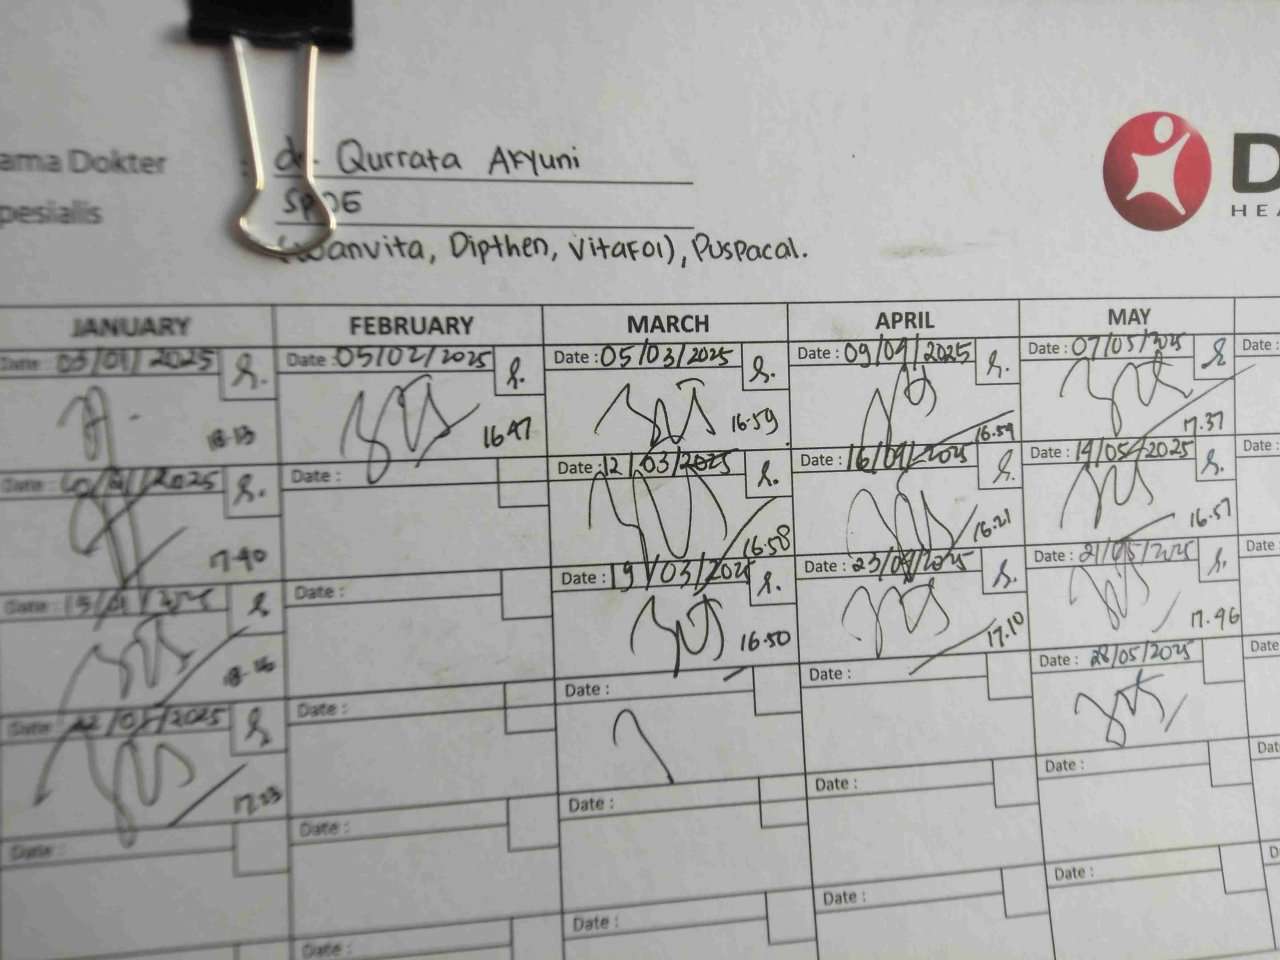 ama Dokter : dr. Qurrata Aryuni
pesialis
Dipthen, VitaFol), Puspacal.
D
HEA
JANUARY FEBRUARY MARCH APRIL MAY
Date : 05/02/2025 Date : 05/03/2025 Date : 09/04/2025 Date : 07/05/2025 Date :
18.13 16.47 16.59 16.59 17.37
Date : Date : 12/03/2025 Date : 16/04/2025 Date : 14/05/2025 Date :
17.40 16.58 16.21 16.57
Date : Date : Date : 19/03/2025 Date : 23/04/2025 Date : 21/05/2025 Date :
16.50 17.10 17.46
Date : Date : Date : Date : Date : 28/05/2025 Date
17.23
Date : Date : Date : Date : Date : Dat
Date : Date : Date : Date : D